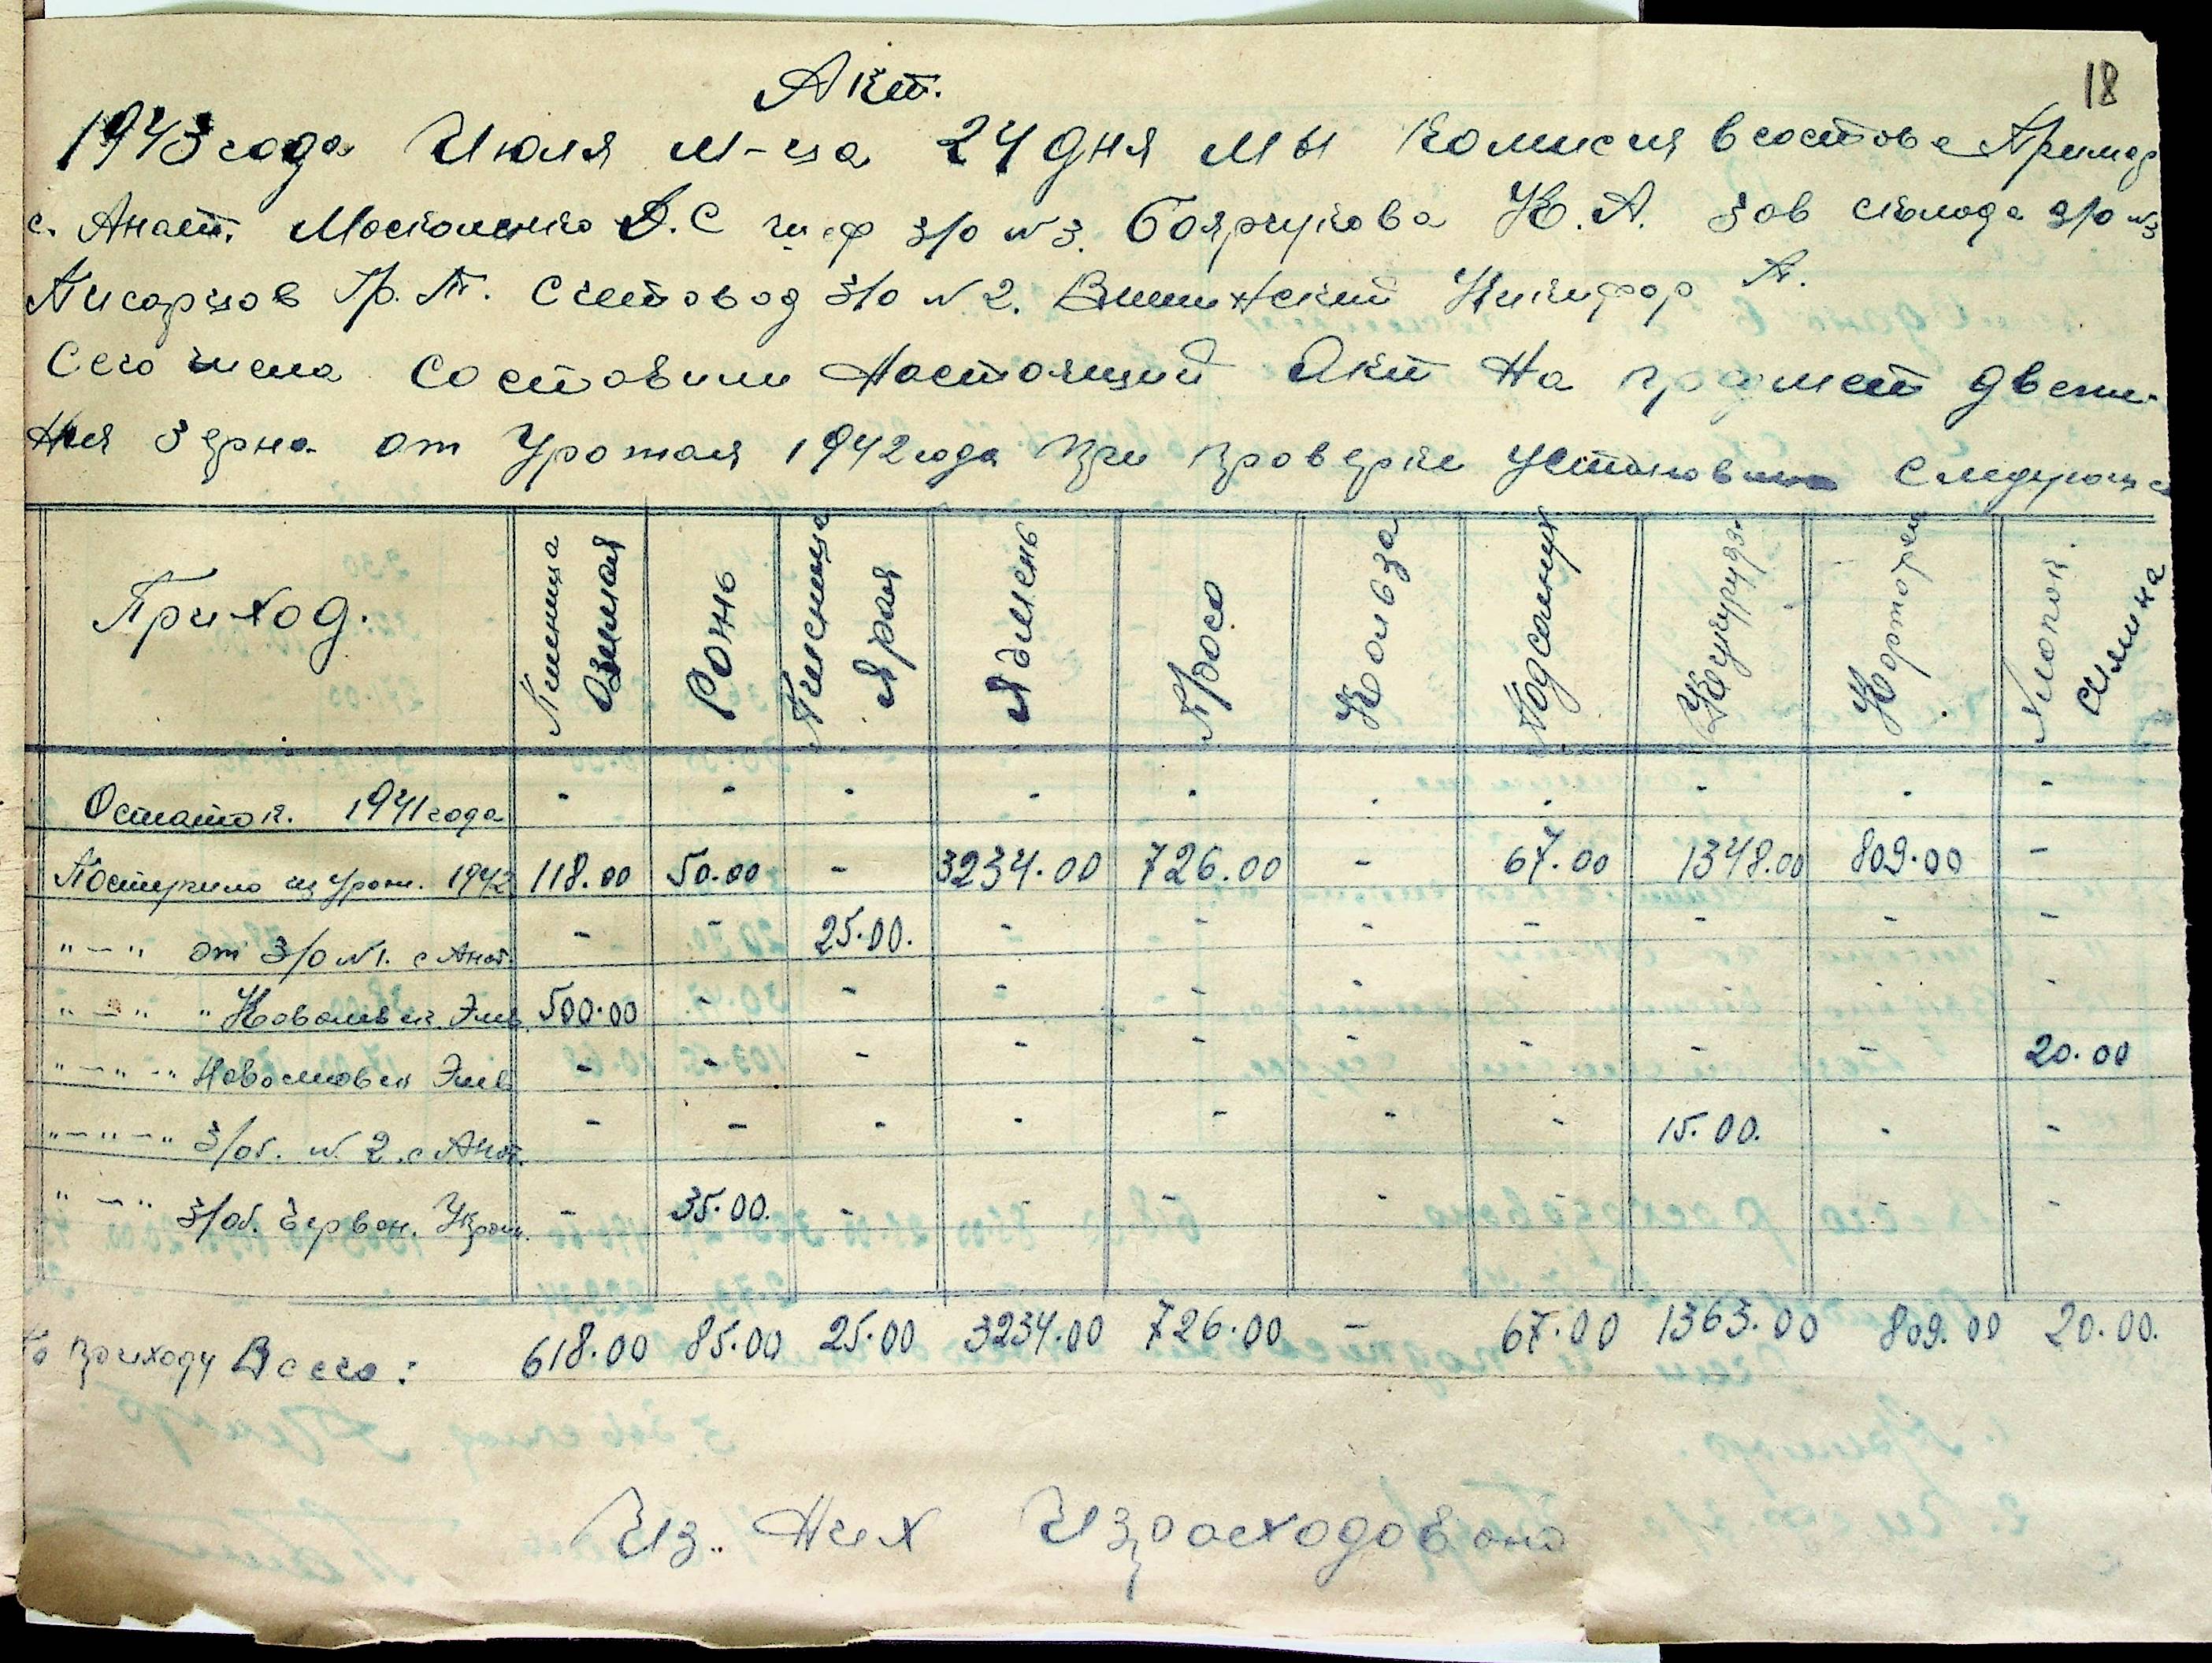 18
Акт.
1943 года Июля м-ца 24 дня мы Комисия в составе Примар
с. Анат. Москаленко Д.С шеф з/о №3. Боярчукова К. А. Зав склада з/о №3
Писарцов Гр. П. Счетовод з/о №2. Вишнский Никифор А.
Сего числа составили настоящий Акт на предмет движе-
ния зерна от Урожая 1942 года При проверке установили следующе
Приход. Пшеница Озимая Рожь Пшеница Ярая Ядмень Просо Кользa Подсолнух Кукурудза. Картофель Хлопок. Клещина
Остаток. 1941 года - - - - - - - - - -
Поступило из урож. 1942 118.00 50.00 - 3234.00 726.00 - 67.00 1348.00 809.00 -
" — " от З/о №1. с Анат. - - 25.00. - - - - - - -
" — " " Элев. 500.00 - - - - - - - - -
" — " — " Элев - - - - - - - - - 20.00
" — " — " З/об. № 2. с Анат. - - - - - - - 15.00. - -
" — " З/об. Червон. - 35.00. - - - - - - - -
По приходу Всего: 618.00 85.00 25.00 3234.00 726.00 — 67.00 1363.00 809.00 20.00.
Из.. них Израсходовано